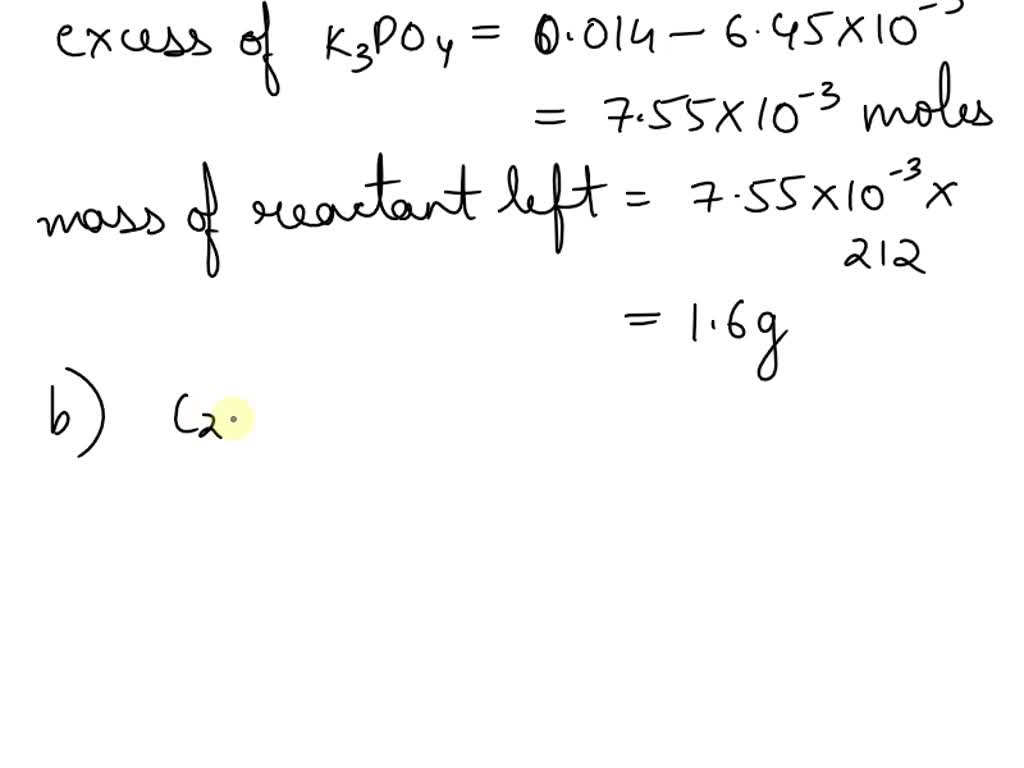 excess of K₃PO₄ = 0.014 - 6.45×10⁻³
= 7.55×10⁻³ moles
mass of reactant left = 7.55×10⁻³ ×
212
= 1.6g
b) C₂